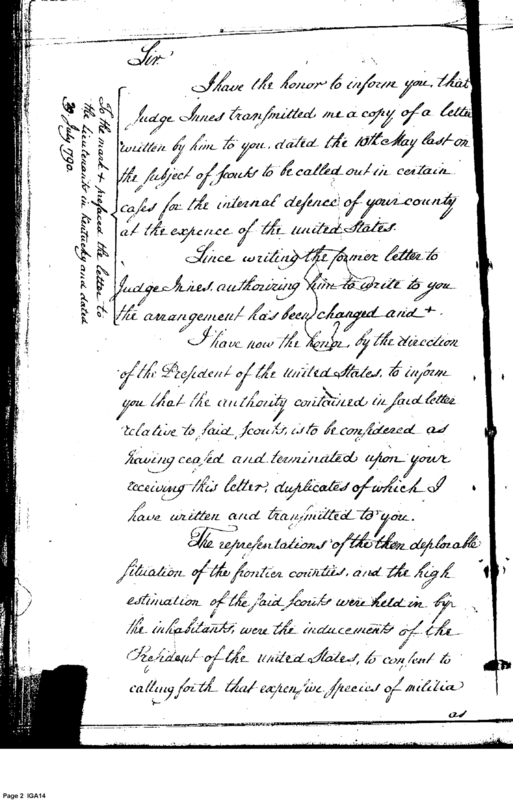 Sir,
I have the honor to inform you, that
Judge Innes transmitted me a copy of a letter
written by him to you, dated the 10th May last on
the subject of Scouts to be called out in certain
cases for the internal defence of your county
at the expence of the united States.
Since writing the former letter to
Judge Innes, authorizing him to write to you
the arrangement has been changed and +
I have now the honor, by the direction
of the President of the united States, to inform
you that the authority contained in said letter
relative to said Scouts, is to be considered as
having ceased and terminated upon your
receiving this letter, duplicates of which I
have written and transmitted to you.
The representations of the then deplorable
situation of the frontier counties, and the high
estimation of the said Scouts were held in by
the inhabitants, were the inducements of the
President of the united States, to consent to
calling forth that expensive species of militia
as
To the mark + prefaced the letter to
the Lieutenants in Kentucky and dated
July 1790.
Page 2 IGA14